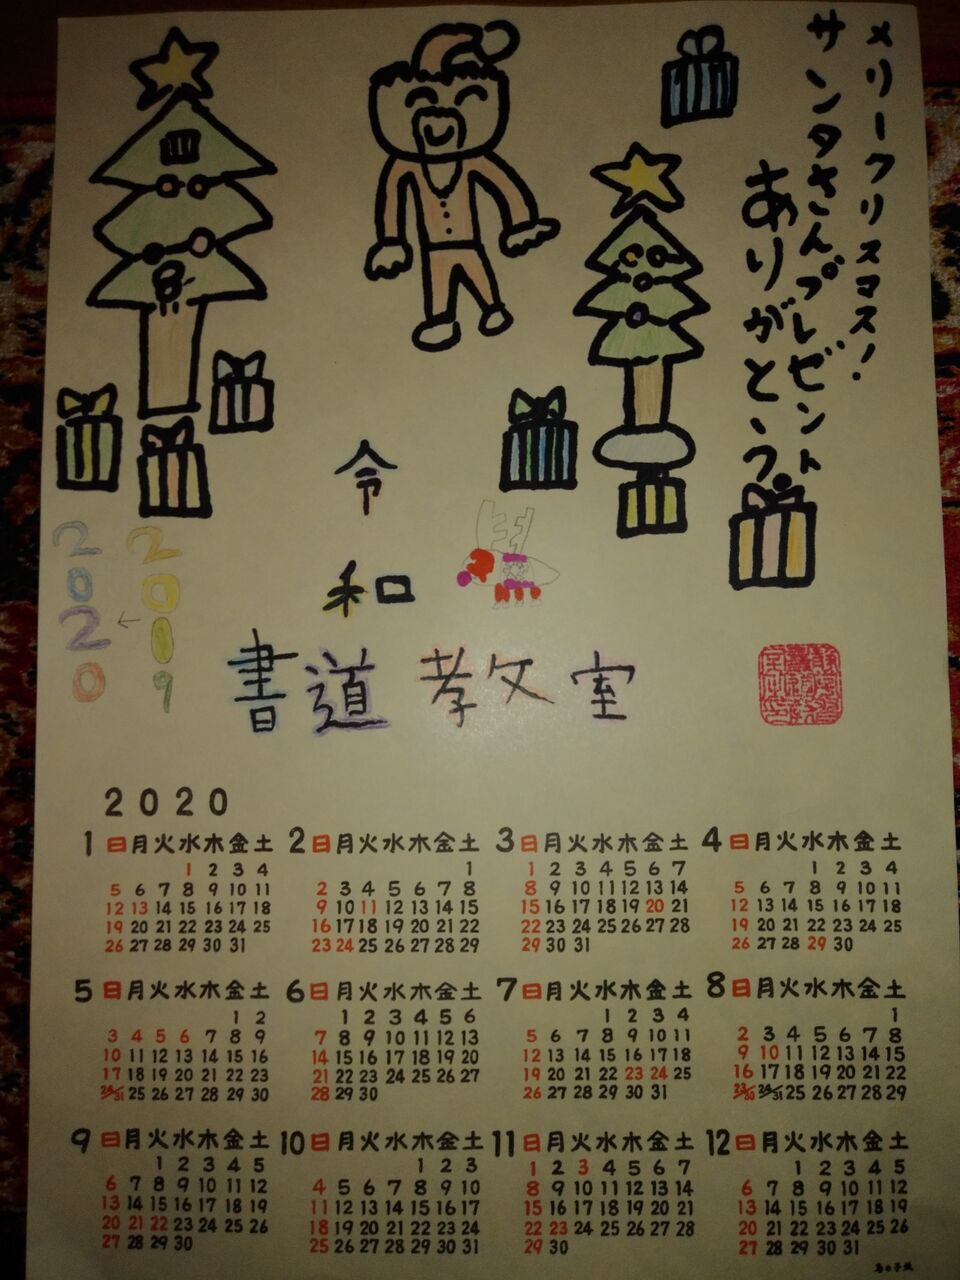 メリークリスマス!
サンタさんプレゼント
ありがとう。
令
和
書道教室
2019
←
2020
2020
1 日月火水木金土
1 2 3 4
5 6 7 8 9 10 11
12 13 14 15 16 17 18
19 20 21 22 23 24 25
26 27 28 29 30 31
2 日月火水木金土
1
2 3 4 5 6 7 8
9 10 11 12 13 14 15
16 17 18 19 20 21 22
23 24 25 26 27 28 29
3 日月火水木金土
1 2 3 4 5 6 7
8 9 10 11 12 13 14
15 16 17 18 19 20 21
22 23 24 25 26 27 28
29 30 31
4 日月火水木金土
1 2 3 4
5 6 7 8 9 10 11
12 13 14 15 16 17 18
19 20 21 22 23 24 25
26 27 28 29 30
5 日月火水木金土
1 2
3 4 5 6 7 8 9
10 11 12 13 14 15 16
17 18 19 20 21 22 23
24/31 25 26 27 28 29 30
6 日月火水木金土
1 2 3 4 5 6
7 8 9 10 11 12 13
14 15 16 17 18 19 20
21 22 23 24 25 26 27
28 29 30
7 日月火水木金土
1 2 3 4
5 6 7 8 9 10 11
12 13 14 15 16 17 18
19 20 21 22 23 24 25
26 27 28 29 30 31
8 日月火水木金土
1
2 3 4 5 6 7 8
9 10 11 12 13 14 15
16 17 18 19 20 21 22
23/30 24/31 25 26 27 28 29
9 日月火水木金土
1 2 3 4 5
6 7 8 9 10 11 12
13 14 15 16 17 18 19
20 21 22 23 24 25 26
27 28 29 30
10 日月火水木金土
1 2 3
4 5 6 7 8 9 10
11 12 13 14 15 16 17
18 19 20 21 22 23 24
25 26 27 28 29 30 31
11 日月火水木金土
1 2 3 4 5 6 7
8 9 10 11 12 13 14
15 16 17 18 19 20 21
22 23 24 25 26 27 28
29 30
12 日月火水木金土
1 2 3 4 5
6 7 8 9 10 11 12
13 14 15 16 17 18 19
20 21 22 23 24 25 26
27 28 29 30 31
鳥の子紙